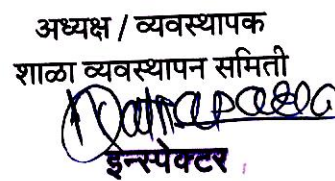 अध्यक्ष / व्यवस्थापक
शाळा व्यवस्थापन समिती
इन्स्पेक्टर